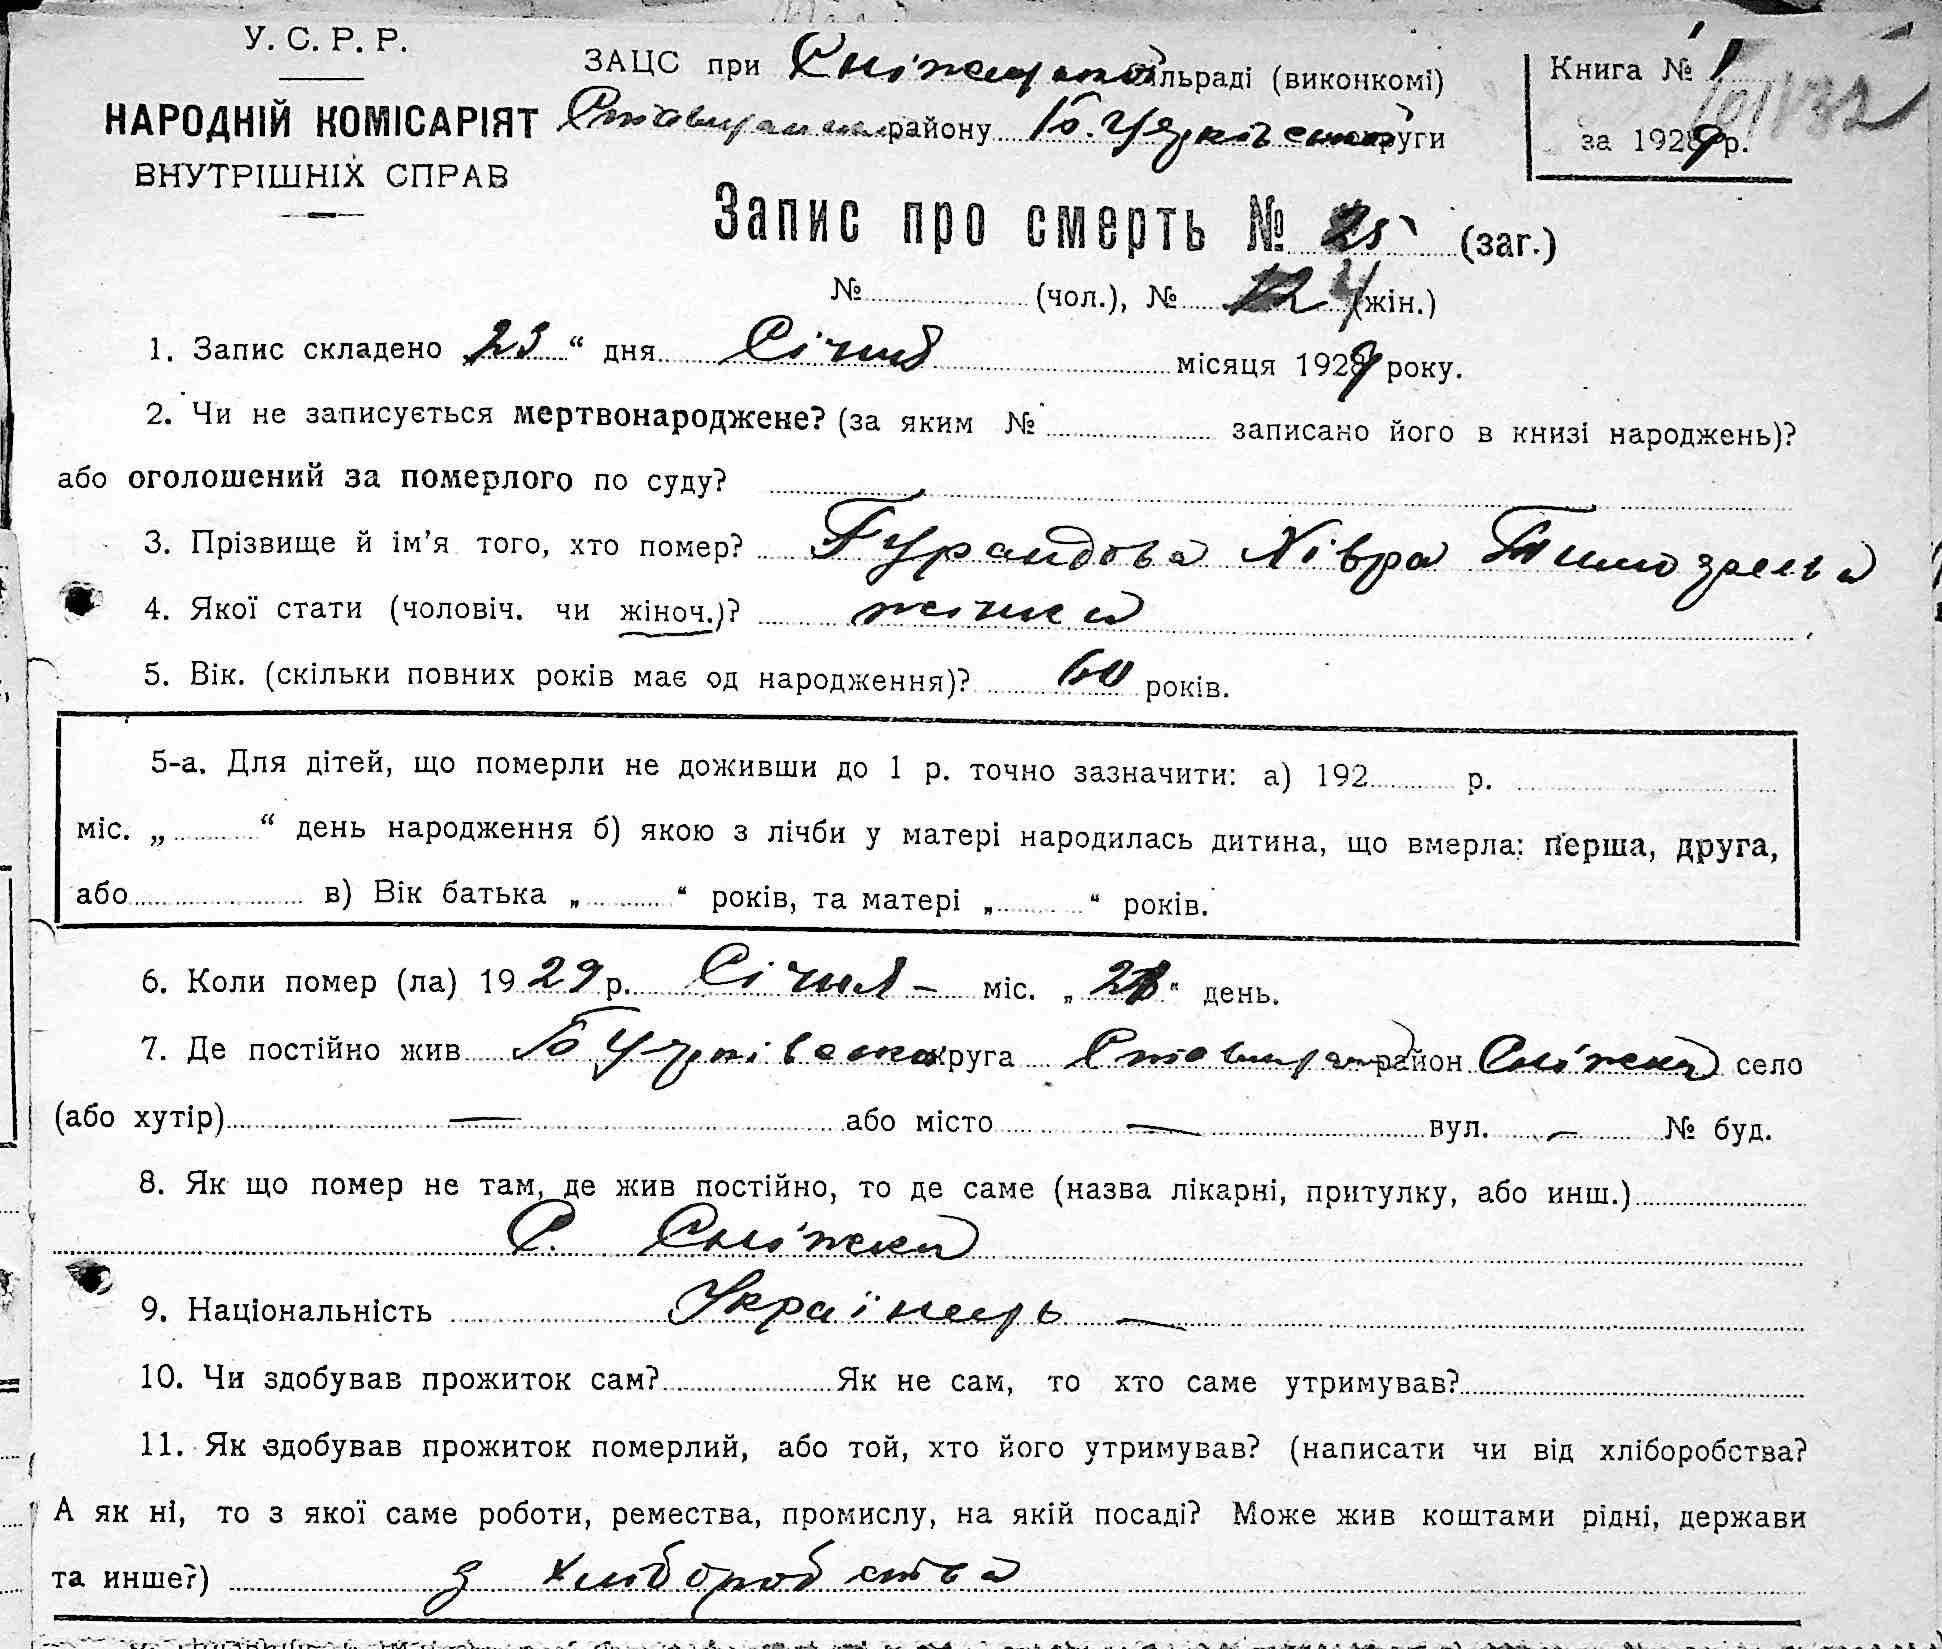 У. С. Р. Р.
НАРОДНІЙ КОМІСАРІЯТ
ВНУТРІШНІХ СПРАВ
ЗАЦС при Сніжецькій сільраді (виконкомі)
Ставищанськ району Б. Церківської округи
Книга № 1
за 1929 р.
Запис про смерть № 25 (заг.)
№ (чол.), № (жін.)
1. Запис складено 23 “ дня Січня місяця 1929 року.
2. Чи не записується мертвонароджене? (за яким № записано його в книзі народжень)?
або оголошений за померлого по суду?
3. Прізвище й ім’я того, хто помер? Хівра
4. Якої стати (чоловіч. чи жіноч.)? жінка
5. Вік. (скільки повних років має од народження)? 60 років.
5-а. Для дітей, що померли не доживши до 1 р. точно зазначити: а) 192 р.
міс. „ “ день народження б) якою з лічби у матері народилась дитина, що вмерла: перша, друга,
або в) Вік батька „ “ років, та матері „ “ років.
6. Коли помер (ла) 1929 р. Січня – міс. „ “ день.
7. Де постійно жив Б Церківська округа Ставищан район Сніжки село
(або хутір) — або місто — вул. – № буд.
8. Як що помер не там, де жив постійно, то де саме (назва лікарні, притулку, або инш.)
С. Сніжки
9. Національність Українець —
10. Чи здобував прожиток сам? Як не сам, то хто саме утримував?
11. Як здобував прожиток померлий, або той, хто його утримував? (написати чи від хліборобства?
А як ні, то з якої саме роботи, ремества, промислу, на якій посаді? Може жив коштами рідні, держави
та инше?) з хліборобства